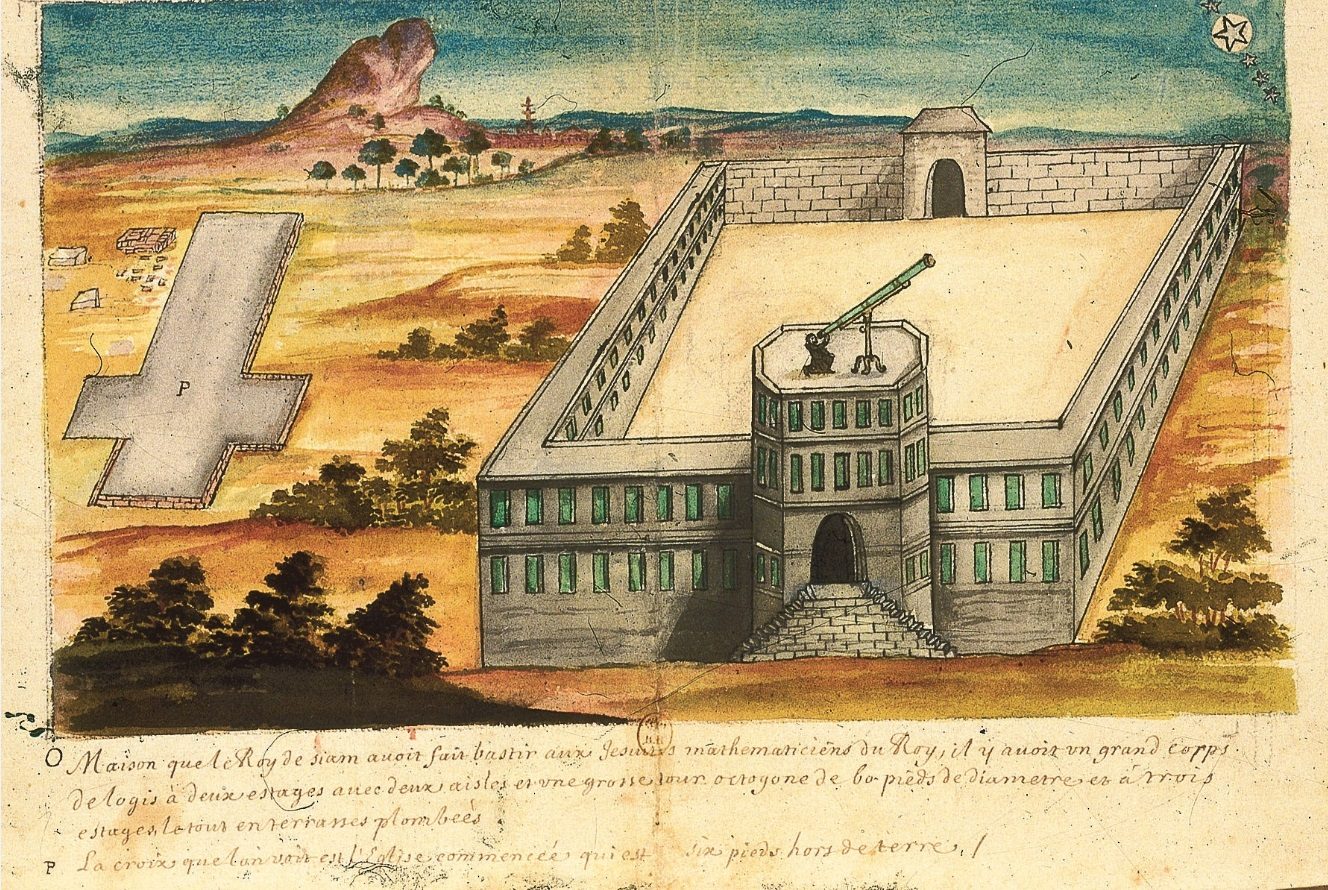 P
O Maison que le Roy de siam avoit fait bastir aux Jesuites mathematiciens du Roy, il y avoit vn grand corps
de logis à deux estages avec deux aisles et vne grosse tour octogone de 60 pieds de diametre et à trois
estages, le tout en terrasses plombées
P La croix que lon voit est l'Eglise commencée qui est six pieds hors de terre. /